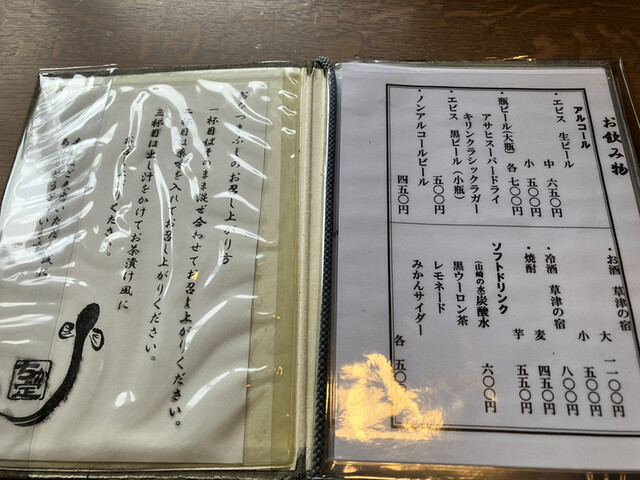 お飲み物
アルコール
・エビス 生ビール
中 六五〇円
小 五〇〇円
・瓶ビール(大瓶) 各 七〇〇円
アサヒスーパードライ
キリンクラシックラガー
・エビス 黒ビール(小瓶)
五〇〇円
・ノンアルコールビール
四五〇円
・お酒 草津の宿
大 一一〇〇円
小 八〇〇円
・冷酒 草津の宿
・焼酎 麦 四五〇円
芋 五五〇円
ソフトドリンク
(山崎の水)炭酸水 六〇〇円
黒ウーロン茶
レモネード
みかんサイダー
各 五〇
のお召し上がり方
一杯目はそのまま混ぜ合わせてお召し上がりください。
二杯目は薬味を入れてお召し上がりください。
三杯目は出し汁をかけてお茶漬け風に
ください。